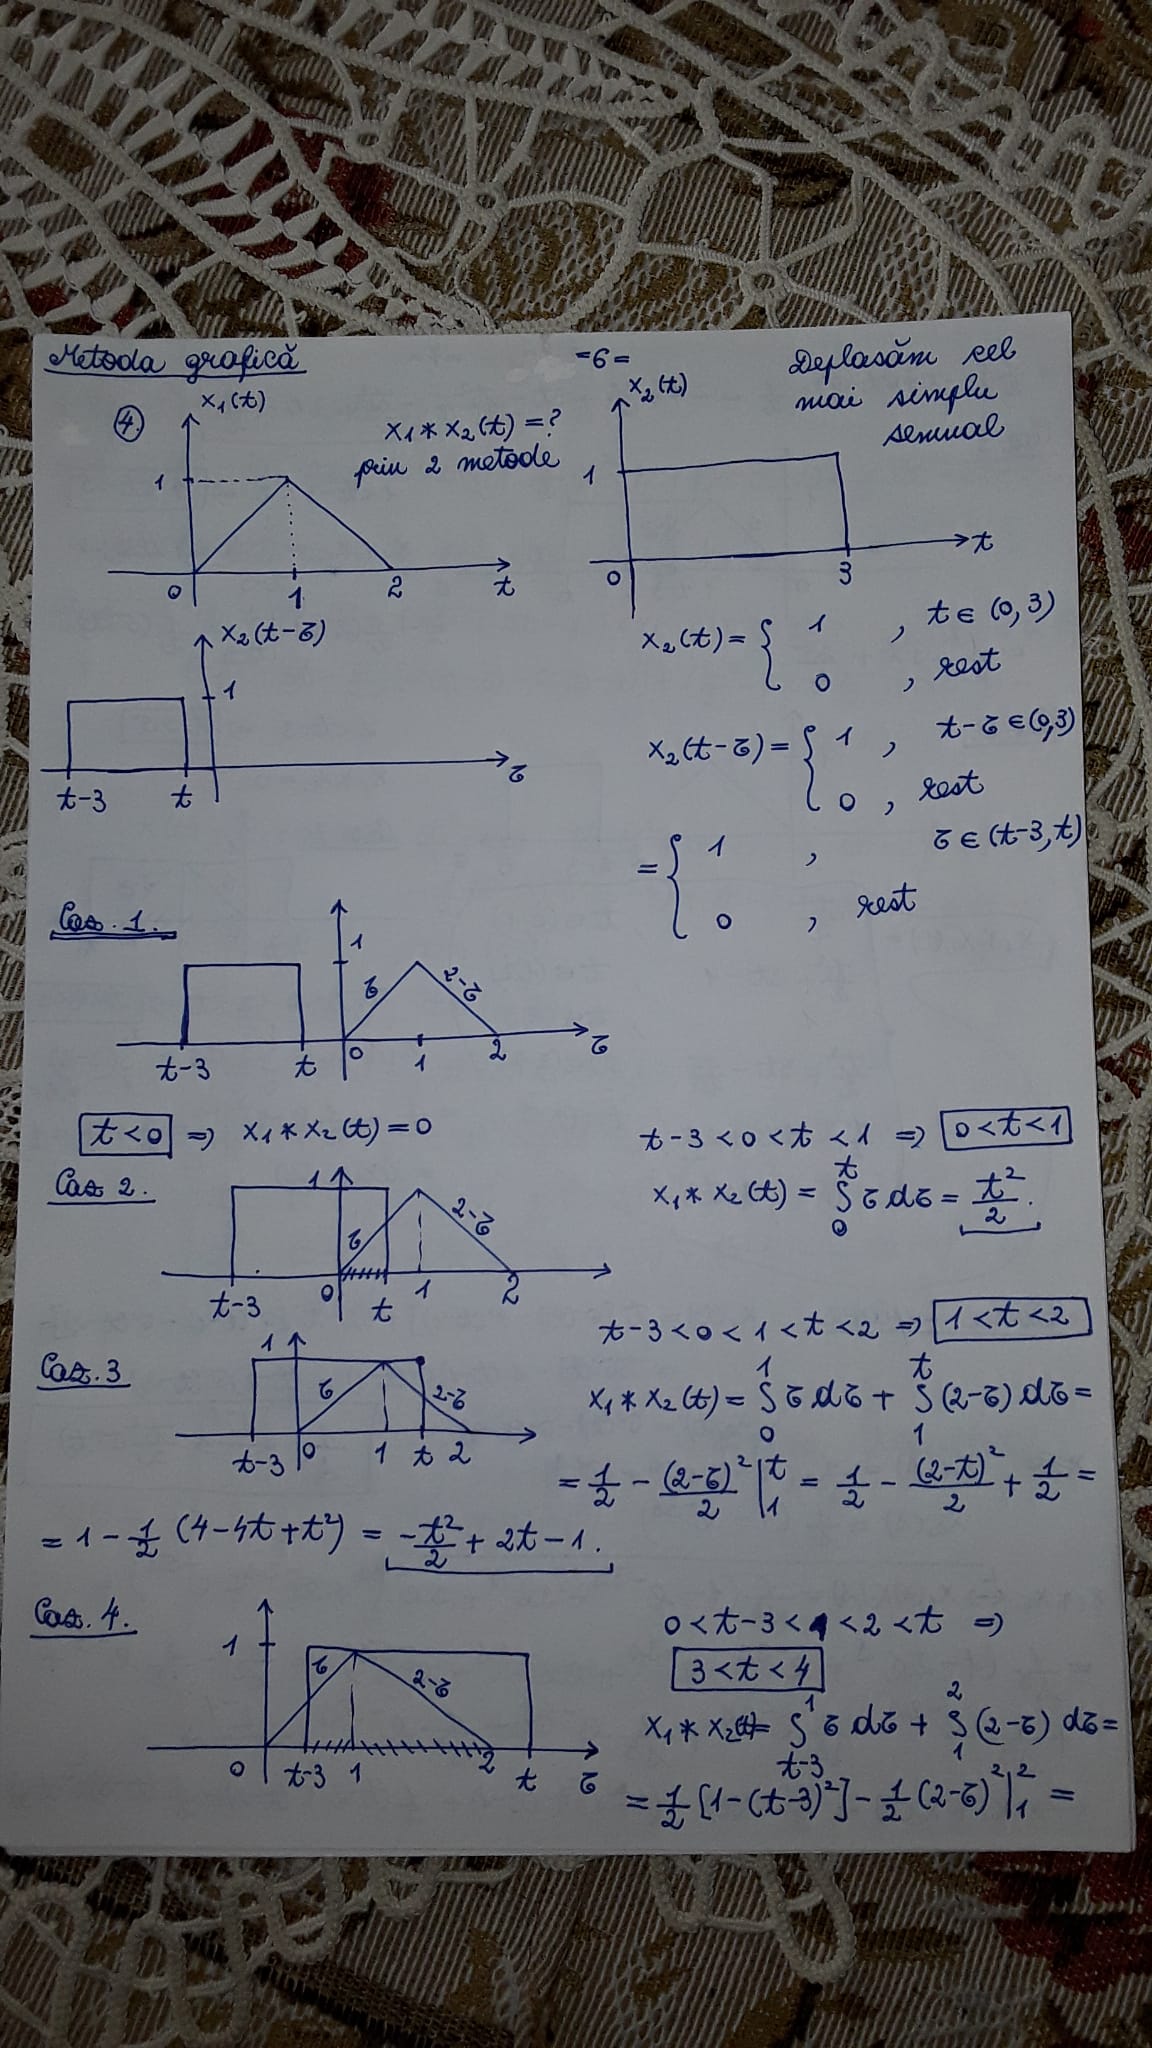 Metoda grafică
=6=
Deplasăm cel
mai simplu
semnal
4.
x₁(t)
1
0
1
2
t
x₁ * x₂(t) = ?
prin 2 metode
x₂(t)
1
0
3
t
x₂(t-τ)
1
t-3
t
τ
x₂(t) = { 1 , t ∈ (0,3)
0 , rest
x₂(t-τ) = { 1 , t-τ ∈ (0,3)
0 , rest
= { 1 , τ ∈ (t-3, t)
0 , rest
Caz. 1.
1
τ
2-τ
t-3
t
0
1
2
τ
t<0 => x₁ * x₂(t) = 0
Caz 2.
1
τ
2-τ
t-3
0
t
1
2
t-3 < 0 < t < 1 => 0<t<1
x₁ * x₂(t) = ∫₀ᵗ τ dτ = t²/2 .
Caz. 3
1
τ
2-τ
t-3
0
1
t
2
t-3 < 0 < 1 < t < 2 => 1<t<2
x₁ * x₂(t) = ∫₀¹ τ dτ + ∫₁ᵗ (2-τ) dτ =
= 1/2 - (2-τ)²/2 |₁ᵗ = 1/2 - (2-t)²/2 + 1/2 =
= 1 - 1/2 (4-4t+t²) = -t²/2 + 2t - 1 .
Caz. 4.
1
τ
2-τ
0
t-3
1
2
t
τ
0 < t-3 < 1 < 2 < t =>
3 < t < 4
x₁ * x₂(t) = ∫ₜ₋₃¹ τ dτ + ∫₁² (2-τ) dτ =
= 1/2 [1-(t-3)²] - 1/2 (2-τ)² |₁² =